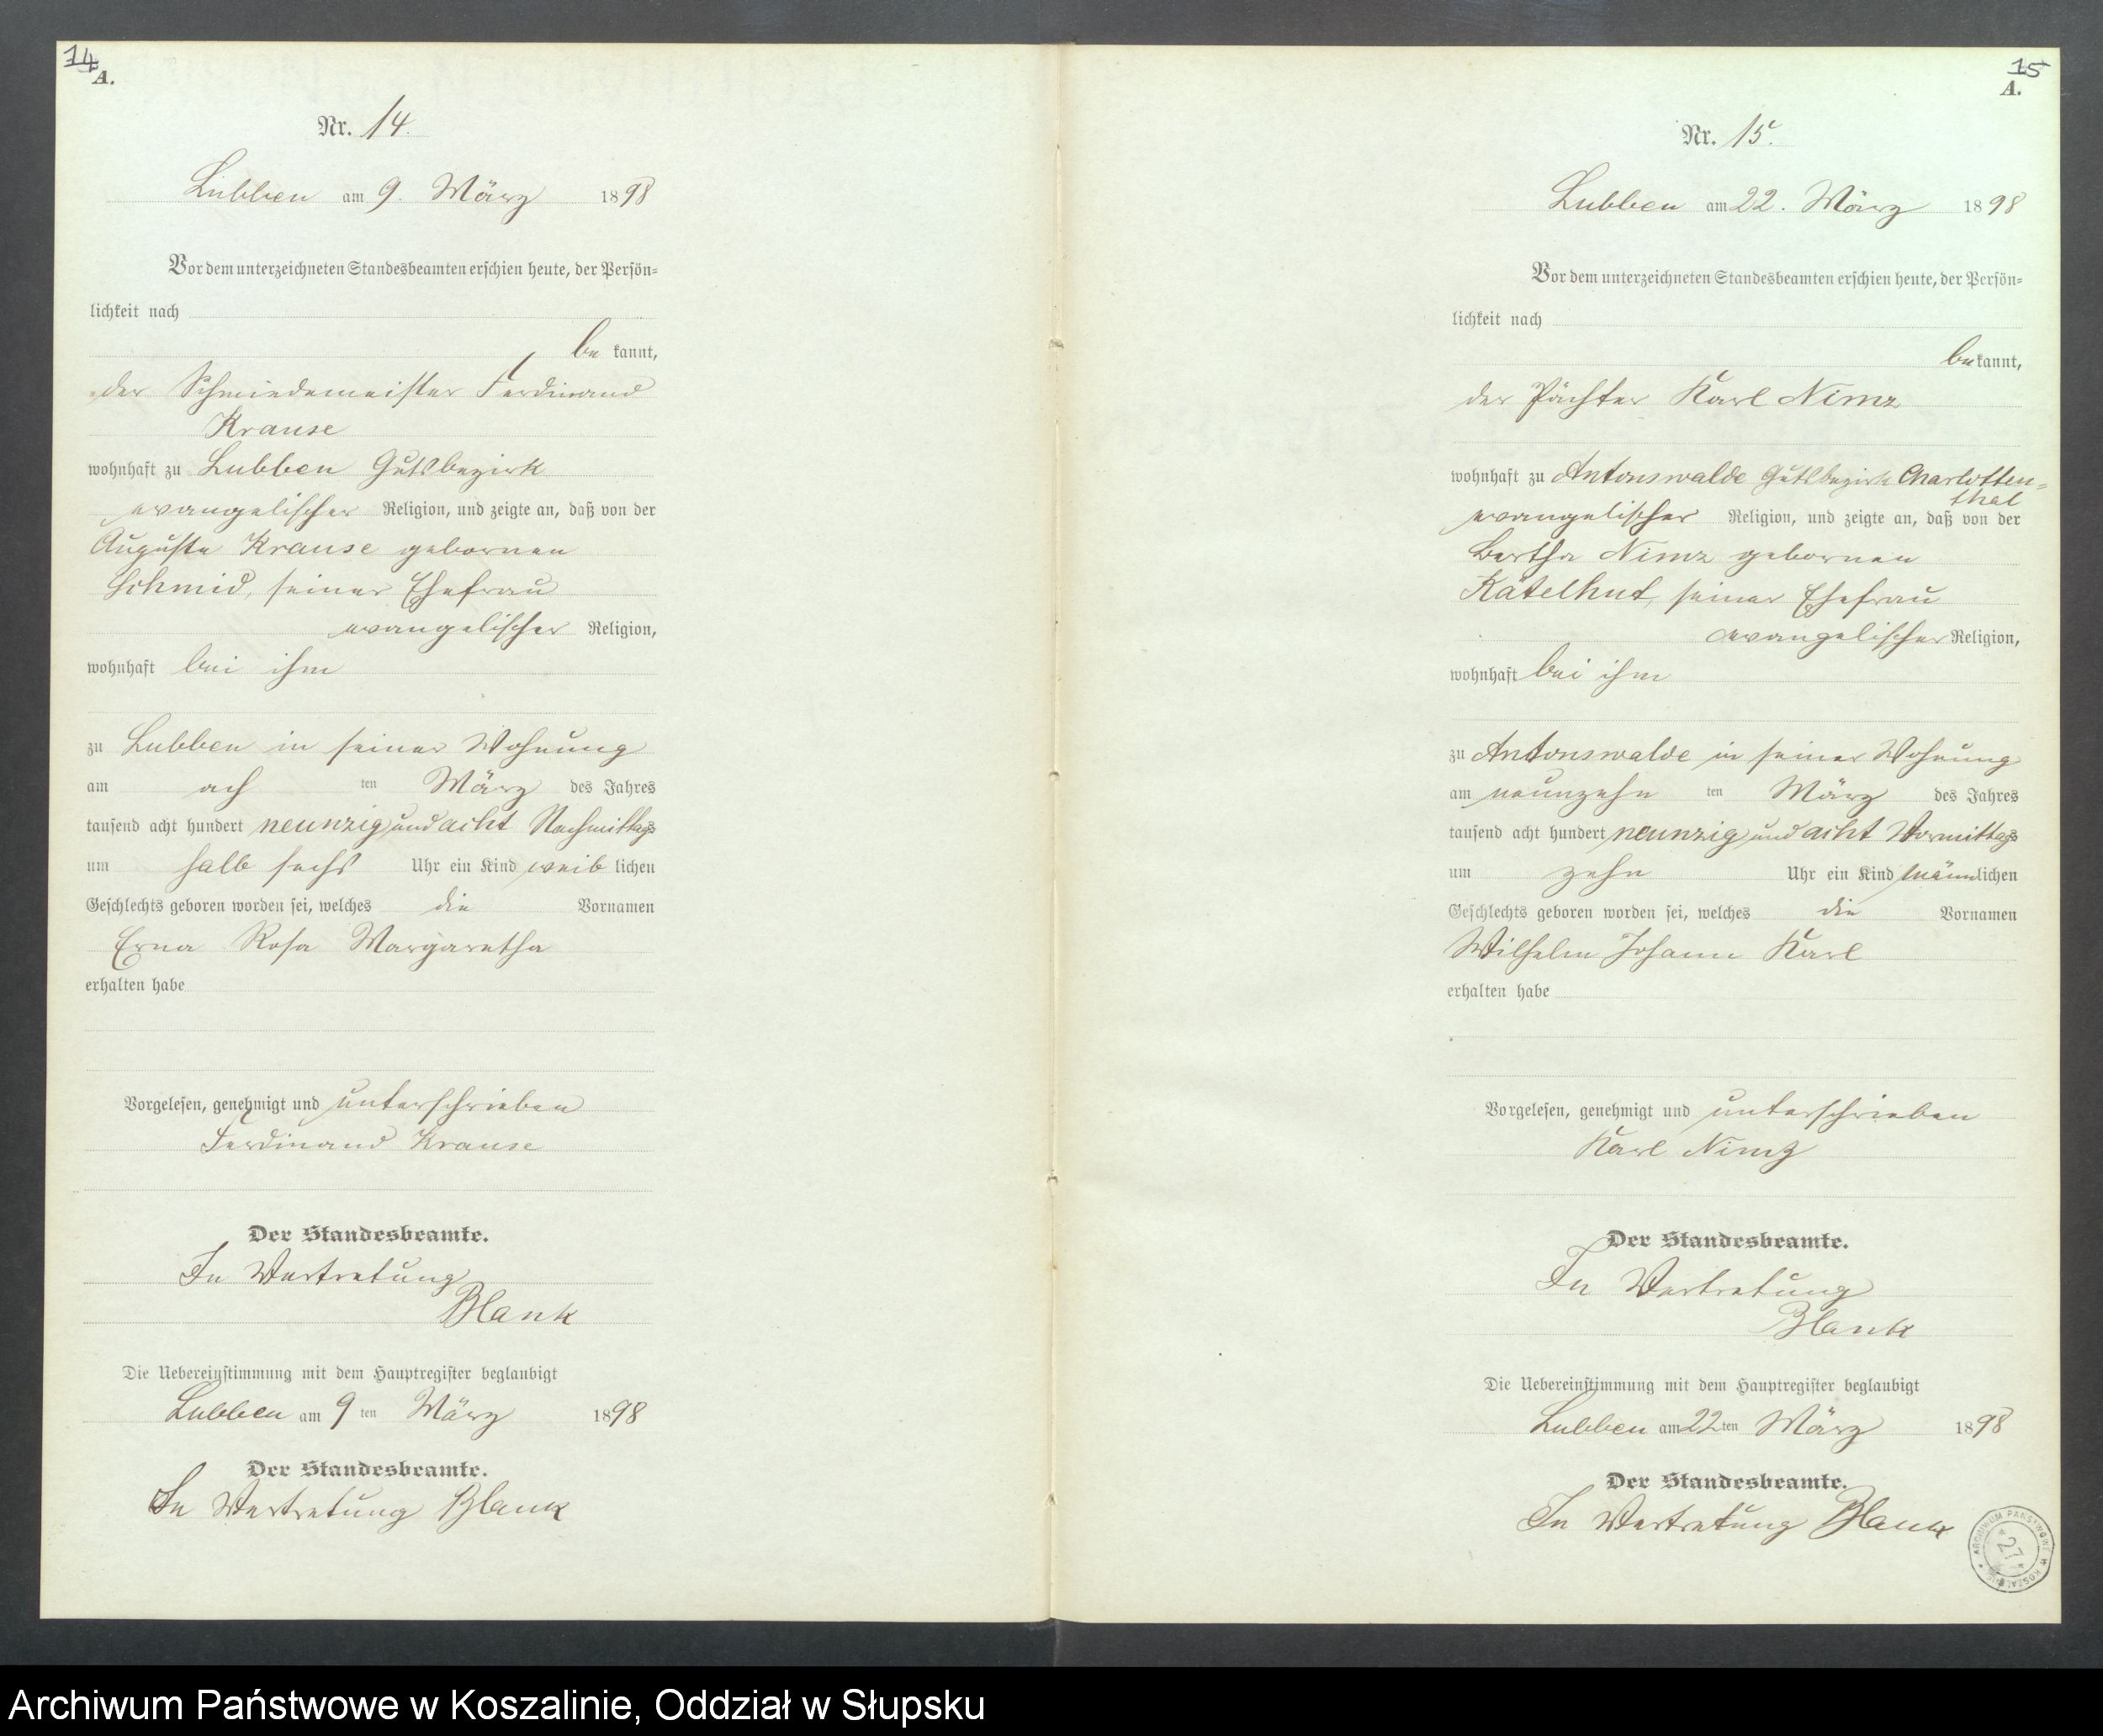 14
A.
Nr. 14.
Lubben am 9. März 1898
Vor dem unterzeichneten Standesbeamten erschien heute, der Persön=
lichkeit nach
be kannt,
der Schmiedemeister Ferdinand
Krause
wohnhaft zu Lubben Gutsbezirk
evangelischer Religion, und zeigte an, daß von der
Auguste Krause gebornen
Schmid, seiner Ehefrau
evangelischer Religion,
wohnhaft bei ihm
zu Lubben in seiner Wohnung
am ach ten März des Jahres
tausend acht hundert neunzig und acht Nachmittags
um halb sechs Uhr ein Kind weib lichen
Geschlechts geboren worden sei, welches die Vornamen
Erna Rosa Margaretha
erhalten habe
Vorgelesen, genehmigt und unterschrieben
Ferdinand Krause
Der Standesbeamte.
In Vertretung
Blank
Die Uebereinstimmung mit dem Hauptregister beglaubigt
Lubben am 9 ten März 1898
Der Standesbeamte.
In Vertretung Blank
15
A.
Nr. 15.
Lubben am 22. März 1898
Vor dem unterzeichneten Standesbeamten erschien heute, der Persön=
lichkeit nach
be kannt,
der Pächter Karl Nimz
wohnhaft zu Antonswalde Gutsbezirk Charlotten=
thal
evangelischer Religion, und zeigte an, daß von der
Bertha Nimz gebornen
Kätelhut, seiner Ehefrau
evangelischer Religion,
wohnhaft bei ihm
zu Antonswalde in seiner Wohnung
am neunzehn ten März des Jahres
tausend acht hundert neunzig und acht Vormittags
um zehn Uhr ein Kind männlichen
Geschlechts geboren worden sei, welches die Vornamen
Wilhelm Johann Karl
erhalten habe
Vorgelesen, genehmigt und unterschrieben
Karl Nimz
Der Standesbeamte.
In Vertretung
Blank
Die Uebereinstimmung mit dem Hauptregister beglaubigt
Lubben am 22 ten März 1898
Der Standesbeamte.
In Vertretung Blank
ARCHIWUM PAŃSTWOWE W KOSZALINIE
*27*
Archiwum Państwowe w Koszalinie, Oddział w Słupsku